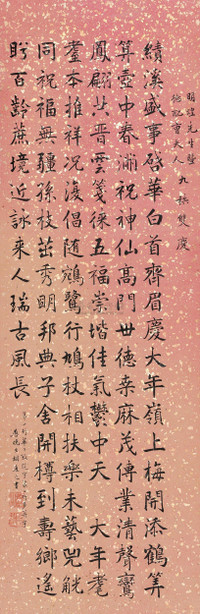 明煌先生暨
德配曹夫人 九秩雙慶
績溪盛事啓華白首齊眉慶大年嶺上梅開添鶴算
算壺中春酒祝神仙高門世德桑麻茂傳業清聲鸞
鳳翩共晉雲箋徠五福崇堦佳氣鬱中天 大年耄
耋本推祥况復倡隨鵷鷺行鳩杖相扶樂未艾兕觥
同祝福無疆孫枝茁秀明邦典子舍開樽到壽鄉遙
盻百齡蔗境近詠來人瑞古風長